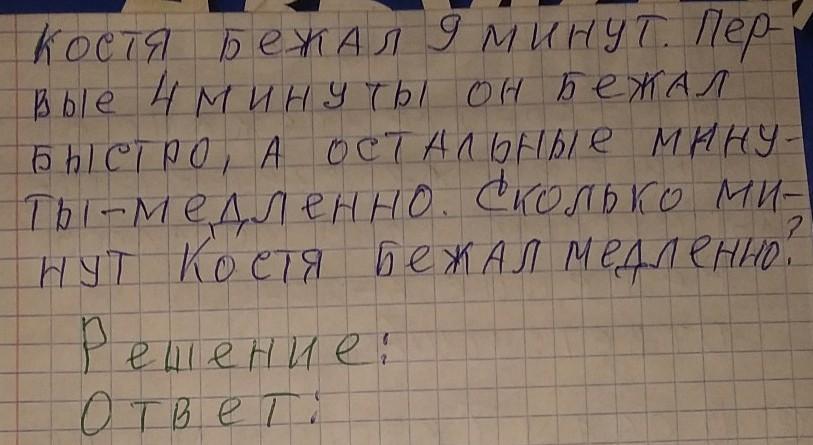 Костя бежал 9 минут. Пер-
вые 4 минуты он бежал
быстро, а остальные мину-
ты-медленно. Сколько ми-
нут Костя бежал медленно?
Решение:
Ответ: